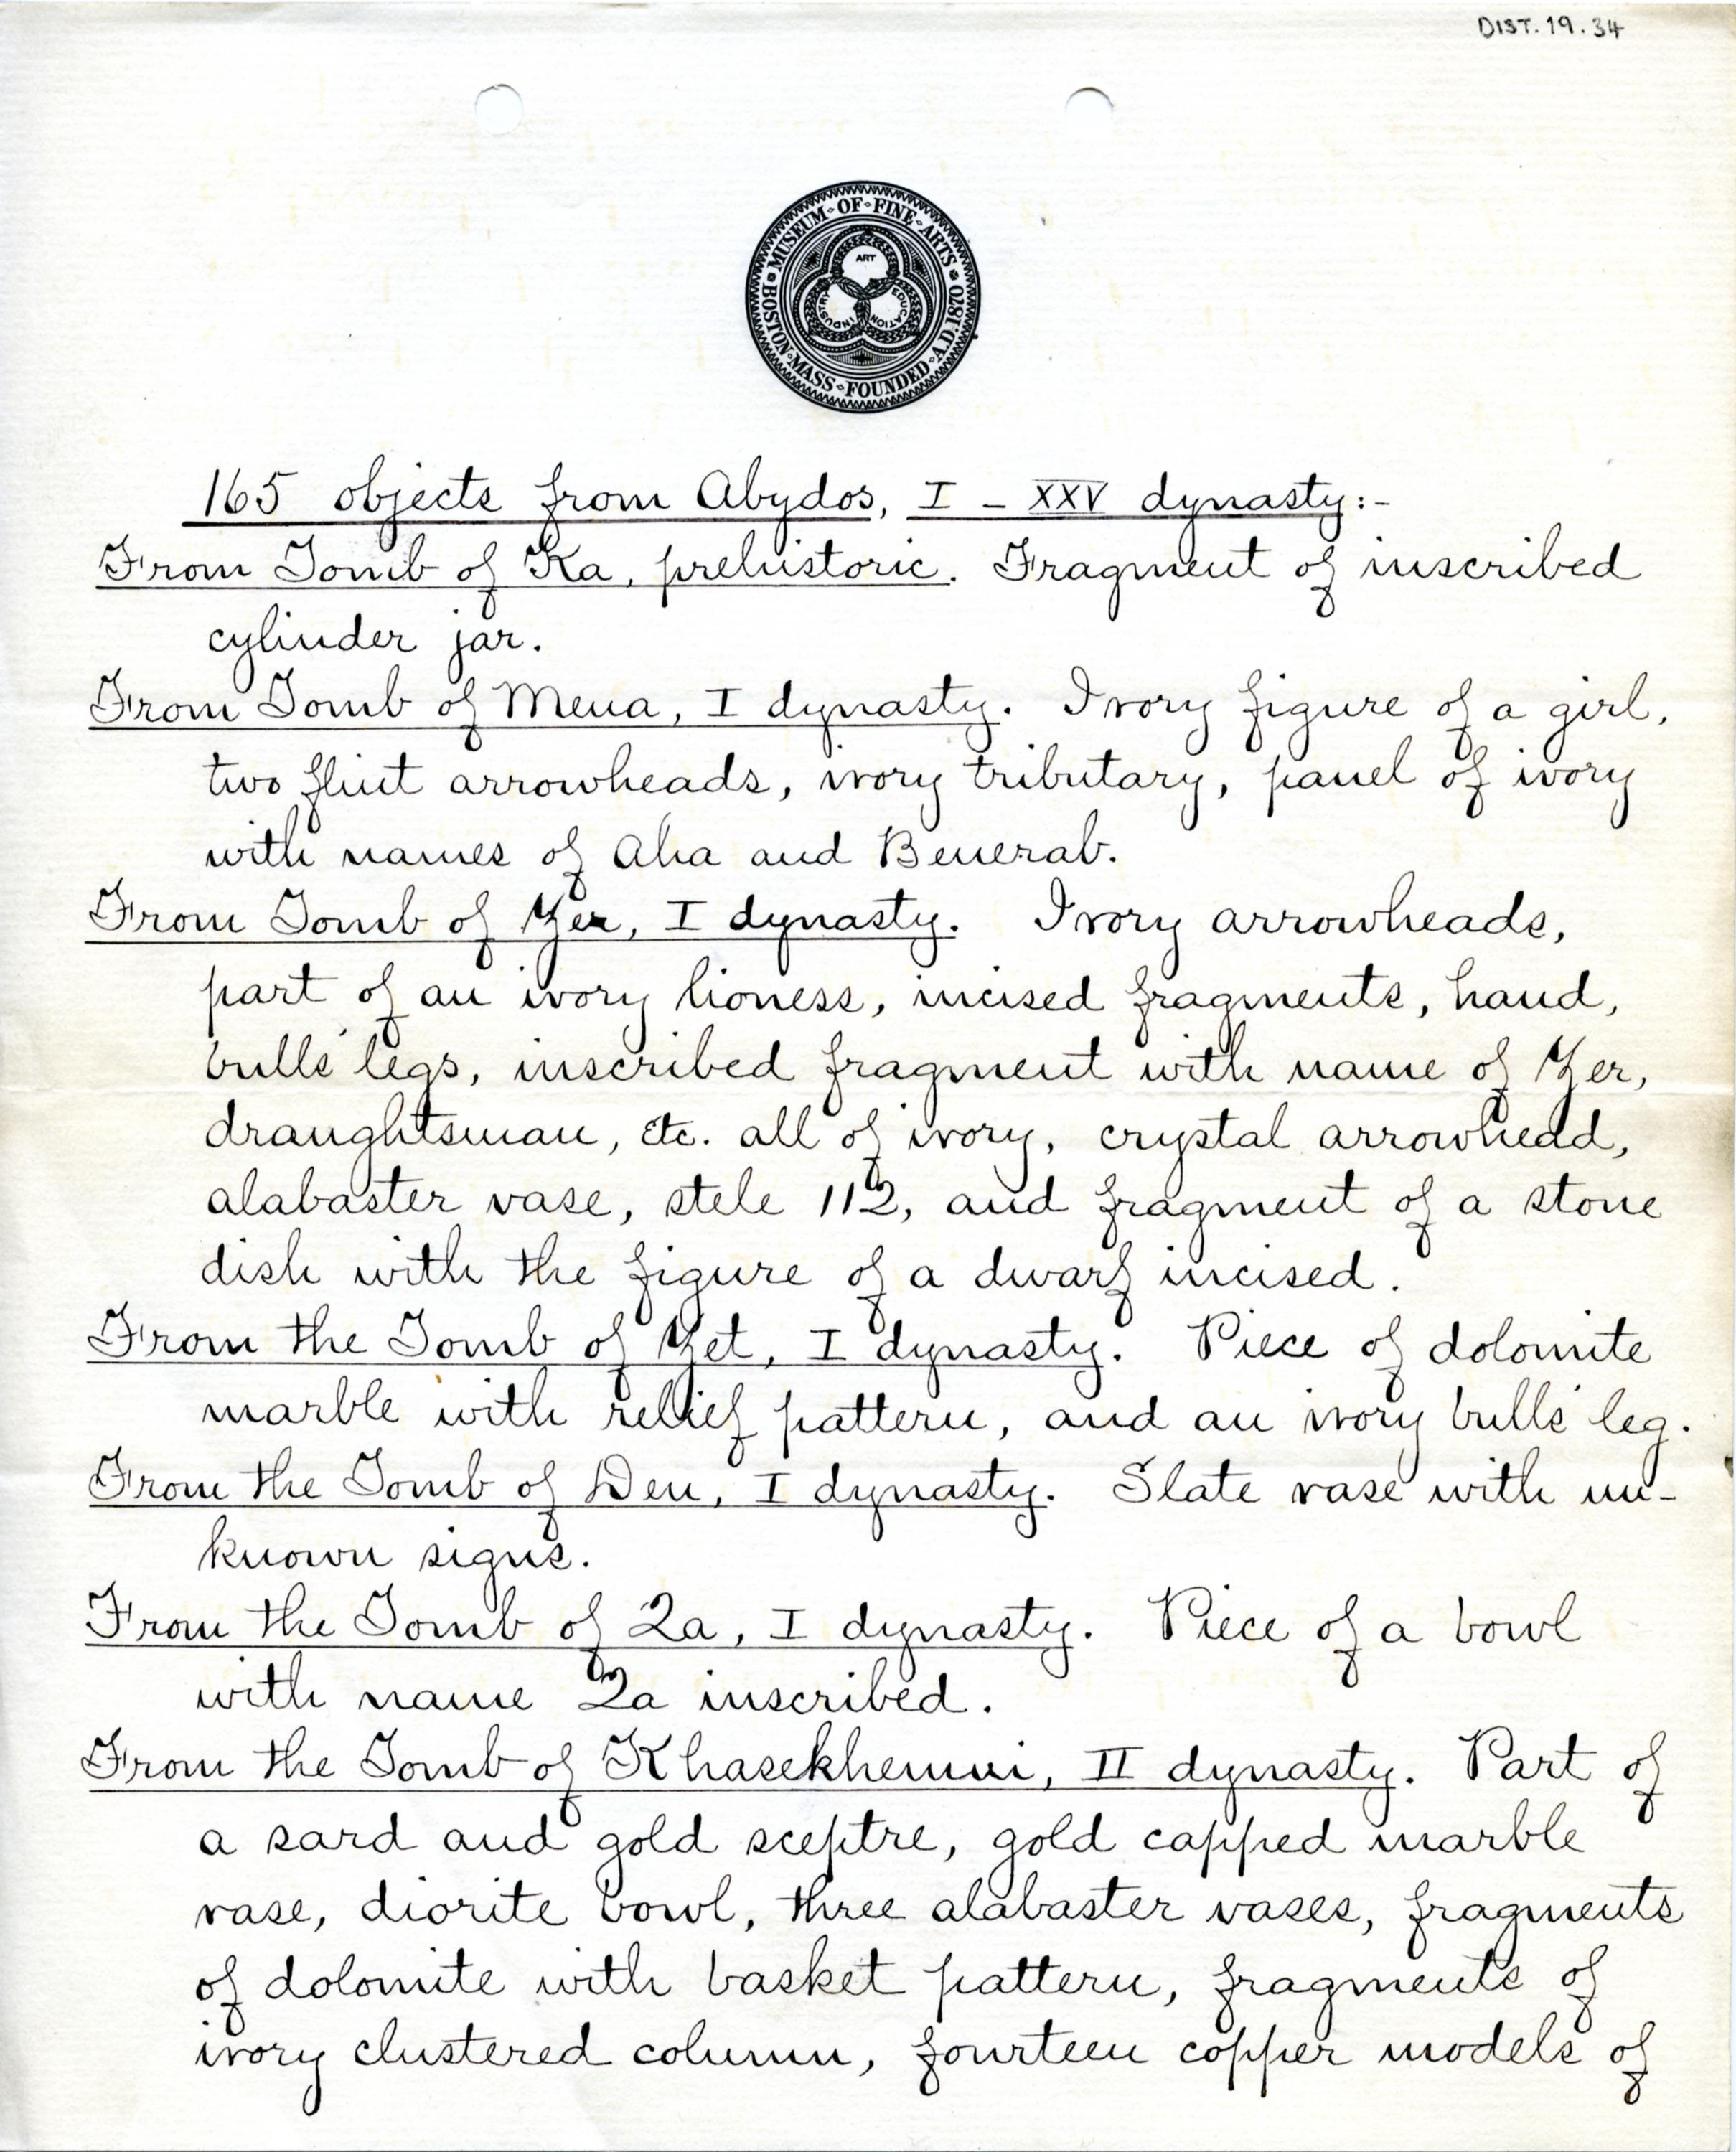 DIST. 19. 34
BOSTON · MASS · FOUNDED · A.D. 1870 · MUSEUM · OF · FINE · ARTS
ART
INDUSTRY
EDUCATION
165 objects from Abydos, I – XXV dynasty:-
From Tomb of Ka, prehistoric. Fragment of inscribed
cylinder jar.
From Tomb of Mena, I dynasty. Ivory figure of a girl,
two flint arrowheads, ivory tributary, panel of ivory
with names of Aha and Benerab.
From Tomb of Zer, I dynasty. Ivory arrowheads,
part of an ivory lioness, incised fragments, hand,
bulls' legs, inscribed fragment with name of Zer,
draughtsman, etc. all of ivory, crystal arrowhead,
alabaster vase, stele 112, and fragment of a stone
dish with the figure of a dwarf incised.
From the Tomb of Zet, I dynasty. Piece of dolomite
marble with relief pattern, and an ivory bulls' leg.
From the Tomb of Den, I dynasty. Slate vase with un-
known signs.
From the Tomb of Qa, I dynasty. Piece of a bowl
with name Qa inscribed.
From the Tomb of Khasekhemui, II dynasty. Part of
a sard and gold sceptre, gold capped marble
vase, diorite bowl, three alabaster vases, fragments
of dolomite with basket pattern, fragments of
ivory clustered column, fourteen copper models of